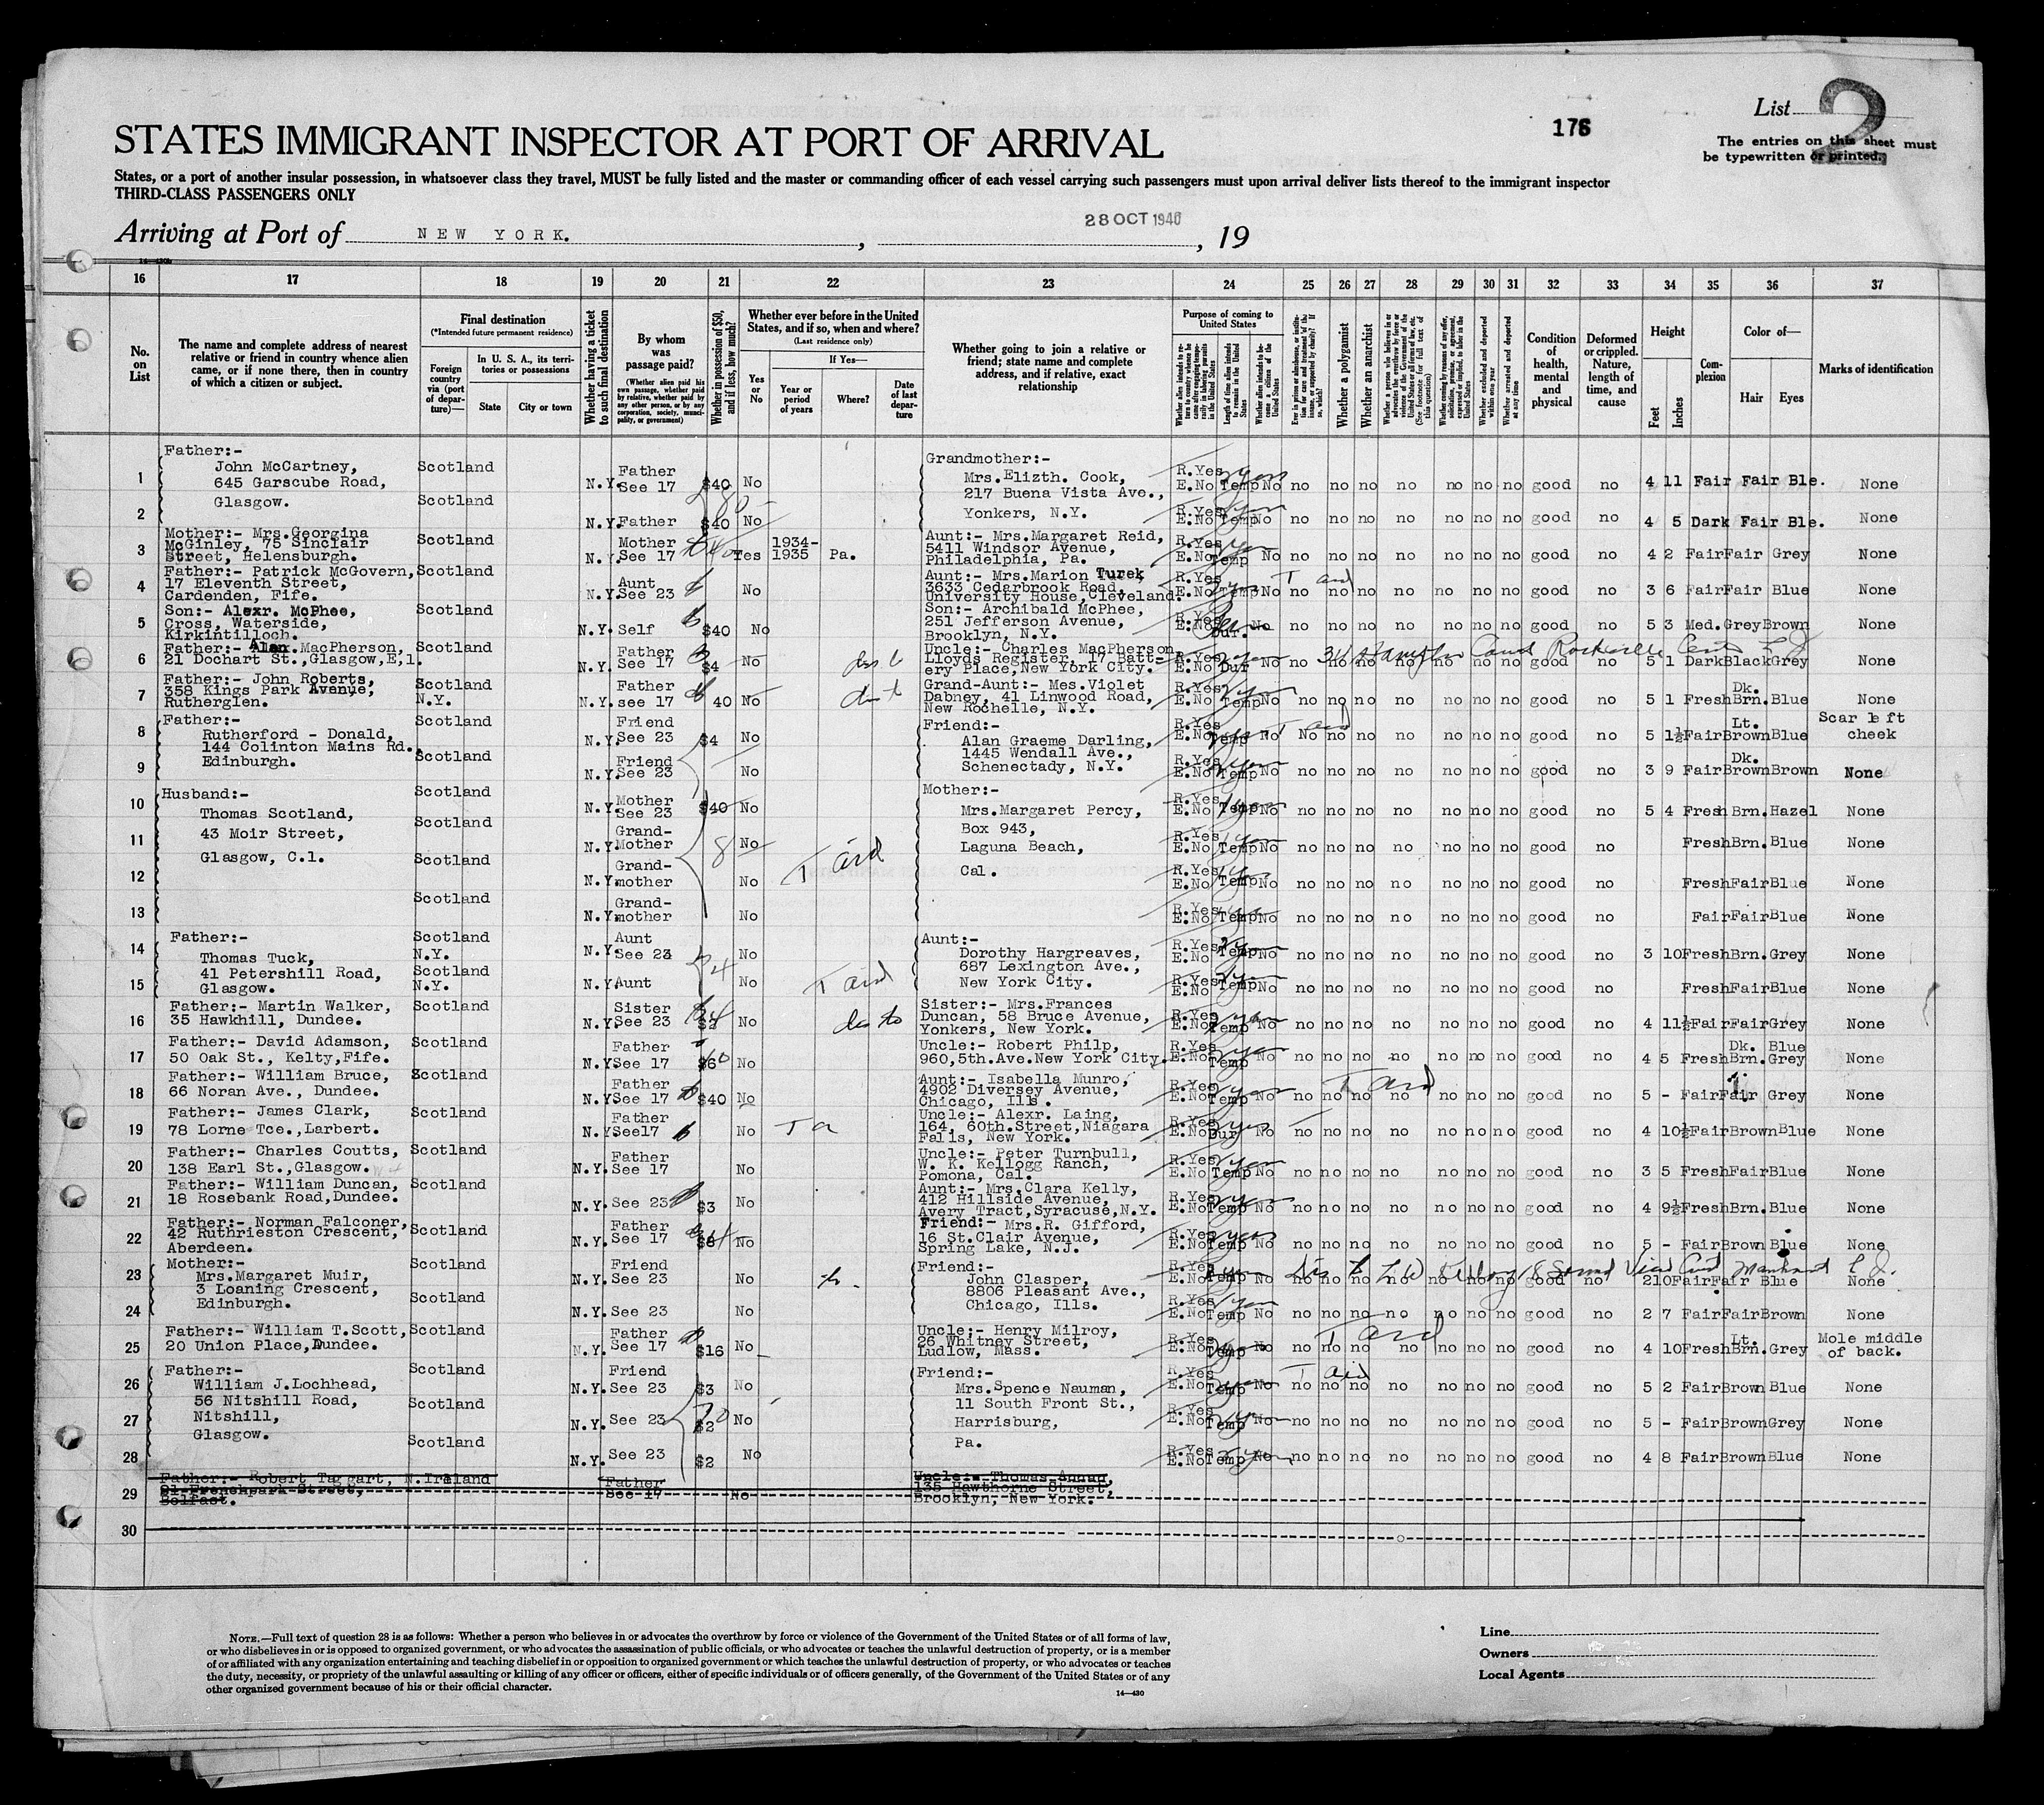 List 2
176
The entries on this sheet must
be typewritten or printed.
STATES IMMIGRANT INSPECTOR AT PORT OF ARRIVAL
States, or a port of another insular possession, in whatsoever class they travel, MUST be fully listed and the master or commanding officer of each vessel carrying such passengers must upon arrival deliver lists thereof to the immigrant inspector
THIRD-CLASS PASSENGERS ONLY
Arriving at Port of NEW YORK. , 28 OCT 1940 , 19
16 17 18 19 20 21 22 23 24 25 26 27 28 29 30 31 32 33 34 35 36 37
No. on List
The name and complete address of nearest relative or friend in country whence alien came, or if none there, then in country of which a citizen or subject.
Final destination
(*Intended future permanent residence)
Foreign country via (port of departure)—
In U. S. A., its territories or possessions
State
City or town
Whether having a ticket to such final destination
By whom was passage paid?
(Whether alien paid his own passage, whether paid by relative, whether paid by any other person, or by any corporation, society, municipality, or government)
Whether in possession of $50, and if less, how much?
Whether ever before in the United States, and if so, when and where?
(Last residence only)
Yes or No
If Yes—
Year or period of years
Where?
Date of last departure
Whether going to join a relative or friend; state name and complete address, and if relative, exact relationship
Purpose of coming to United States
Whether a polygamist
Whether an anarchist
Condition of health, mental and physical
Deformed or crippled. Nature, length of time, and cause
Height
Feet
Inches
Complexion
Color of—
Hair
Eyes
Marks of identification
1 Father:- John McCartney, 645 Garscube Road, Glasgow. Scotland N.Y. Father See 17 $40 No Grandmother:- Mrs.Elizth. Cook, 217 Buena Vista Ave., Yonkers, N.Y. R.Yes E.No Temp No no no no no no no no good no 4 11 Fair Fair Ble. None
2 Scotland N.Y. Father $40 No R.Yes E.No Temp No no no no no no no no good no 4 5 Dark Fair Ble. None
3 Mother:- Mrs.Georgina McGinley, 75 Sinclair Street, Helensburgh. Scotland N.Y. Mother See 17 Yes 1934-1935 Pa. Aunt:- Mrs.Margaret Reid, 5411 Windsor Avenue, Philadelphia, Pa. R.Yes E.No Temp No no no no no no no no good no 4 2 Fair Fair Grey None
4 Father:- Patrick McGovern, 17 Eleventh Street, Cardenden, Fife. Scotland N.Y. Aunt See 23 No Aunt:- Mrs.Marion Turek, 3633 Cedarbrook Road, University House, Cleveland. R.Yes E.No Temp No no no no no no no no good no 3 6 Fair Fair Blue None
5 Son:- Alexr. McPhee, Cross, Waterside, Kirkintilloch. Scotland N.Y. Self $40 No Son:- Archibald McPhee, 251 Jefferson Avenue, Brooklyn, N.Y. R.Yes E.No Dur. No no no no no no no no good no 5 3 Med. Grey Brown None
6 Father:- Alex.MacPherson, 21 Dochart St.,Glasgow,E,1. Scotland N.Y. Father See 17 $4 No Uncle:- Charles MacPherson Lloyds Register, 17 Battery Place,New York City. R.Yes E.No Dur No no no no no no no no good no 5 1 Dark Black Grey None
7 Father:- John Roberts, 358 Kings Park Avenue, Rutherglen. Scotland N.Y. N.Y. Father see 17 40 No Grand-Aunt:- Mes.Violet Dabney, 41 Linwood Road, New Rochelle, N.Y. R.Yes E.No Temp No no no no no no no no good no 5 1 Fresh Dk. Brn. Blue None
8 Father:- Rutherford - Donald, 144 Colinton Mains Rd., Edinburgh. Scotland N.Y. Friend See 23 $4 No Friend:- Alan Graeme Darling, 1445 Wendall Ave., Schenectady, N.Y. R.Yes E.No Temp No No no no no no no no good no 5 1½ Fair Lt. Brown Blue Scar left cheek
9 Scotland N.Y. Friend See 23 No R.Yes E.No Temp No no no no no no no no good no 3 9 Fair Dk. Brown Brown None
10 Husband:- Thomas Scotland, 43 Moir Street, Glasgow, C.1. Scotland N.Y. Mother See 23 $40 No Mother:- Mrs.Margaret Percy, Box 943, Laguna Beach, Cal. R.Yes E.No Temp No no no no no no no no good no 5 4 Fresh Brn. Hazel None
11 Scotland N.Y. Grand-Mother No R.Yes E.No Temp No no no no no no no no good no Fresh Brn. Blue None
12 Scotland N.Y. Grand-mother No T aid R.Yes E.No Temp No no no no no no no no good no Fresh Fair Blue None
13 Scotland N.Y. Grand-mother No E.No Temp No no no no no no no no good no Fair Fair Blue None
14 Father:- Thomas Tuck, 41 Petershill Road, Glasgow. Scotland N.Y. N.Y. Aunt See 23 No Aunt:- Dorothy Hargreaves, 687 Lexington Ave., New York City. R.Yes E.No Temp No no no no no no no no good no 3 10 Fresh Brn. Grey None
15 Scotland N.Y. N.Y. Aunt No T aid R.Yes E.No Temp No no no no no no no no good no Fresh Fair Blue None
16 Father:- Martin Walker, 35 Hawkhill, Dundee. Scotland N.Y. Sister See 23 No Sister:- Mrs.Frances Duncan, 58 Bruce Avenue, Yonkers, New York. R.Yes E.No Temp No no no no no no no no good no 4 11½ Fair Fair Grey None
17 Father:- David Adamson, 50 Oak St., Kelty,Fife. Scotland N.Y. Father See 17 No Uncle:- Robert Philp, 960,5th.Ave.New York City. R.Yes E.No Temp No no no no no no no no good no 4 5 Fresh Dk. Brn. Blue Grey None
18 Father:- William Bruce, 66 Noran Ave., Dundee. Scotland N.Y. Father See 17 $40 No Aunt:- Isabella Munro, 4902 Diversey Avenue, Chicago, Ills. R.Yes E.No Temp No no no no no no no no good no 5 - Fair Fair Grey None
19 Father:- James Clark, 78 Lorne Tce.,Larbert. Scotland N.Y. Father See17 No Uncle:- Alexr. Laing, 164, 60th.Street,Niagara Falls, New York. R.Yes E.No Dur No no no no no no no no good no 4 10½ Fair Brown Blue None
20 Father:- Charles Coutts, 138 Earl St.,Glasgow. Scotland N.Y. Father See 17 No Uncle:- Peter Turnbull, W. K. Kellogg Ranch, Pomona, Cal. R.Yes E.No Temp No no no no no no no no good no 3 5 Fresh Fair Blue None
21 Father:- William Duncan, 18 Rosebank Road,Dundee. Scotland N.Y. See 23 $3 No Aunt:- Mrs.Clara Kelly, 412 Hillside Avenue, Avery Tract,Syracuse,N.Y. R.Yes E.No Temp No no no no no no no no good no 4 9½ Fresh Brn. Blue None
22 Father:- Norman Falconer, 42 Ruthrieston Crescent, Aberdeen. Scotland N.Y. Father See 17 No Friend:- Mrs.R. Gifford, 16 St.Clair Avenue, Spring Lake, N.J. R.Yes E.No Temp No no no no no no no no good no 5 - Fair Brown Blue None
23 Mother:- Mrs.Margaret Muir, 3 Loaning Crescent, Edinburgh. Scotland N.Y. Friend See 23 No Friend:- John Clasper, 8806 Pleasant Ave., Chicago, Ills. R.Yes E.No Temp No no no no no no no no good no 2 10 Fair Fair Blue None
24 Scotland N.Y. See 23 No R.Yes E.No Temp No no no no no no no no good no 2 7 Fair Fair Brown None
25 Father:- William T.Scott, 20 Union Place,Dundee. Scotland N.Y. Father See 17 $16 No Uncle;- Henry Milroy, 26 Whitney Street, Ludlow, Mass. R.Yes E.No Temp No no no no no no no no good no 4 10 Fresh Lt. Brn. Grey Mole middle of back.
26 Father:- William J.Lochhead, 56 Nitshill Road, Nitshill, Glasgow. Scotland N.Y. Friend See 23 $3 No Friend:- Mrs.Spence Nauman, 11 South Front St., Harrisburg, Pa. R.Yes E.No Temp No no no no no no no no good no 5 2 Fair Brown Blue None
27 Scotland N.Y. See 23 $2 No R.Yes E.No Temp No no no no no no no no good no 5 - Fair Brown Grey None
28 Scotland N.Y. See 23 $2 No R.Yes E.No Temp No no no no no no no no good no 4 8 Fair Brown Blue None
29 Father:- Robert Taggart, N.Ireland 21 Frenchpark Street, Belfast. Father See 17 No Uncle:- Thomas 135 Hawthorne Street, Brooklyn, New York.
30
NOTE.—Full text of question 28 is as follows: Whether a person who believes in or advocates the overthrow by force or violence of the Government of the United States or of all forms of law,
or who disbelieves in or is opposed to organized government, or who advocates the assassination of public officials, or who advocates or teaches the unlawful destruction of property, or is a member
of or affiliated with any organization entertaining and teaching disbelief in or opposition to organized government or which teaches the unlawful destruction of property, or who advocates or teaches
the duty, necessity, or propriety of the unlawful assaulting or killing of any officer or officers, either of specific individuals or of officers generally, of the Government of the United States or of any
other organized government because of his or their official character.
14—430
Line
Owners
Local Agents